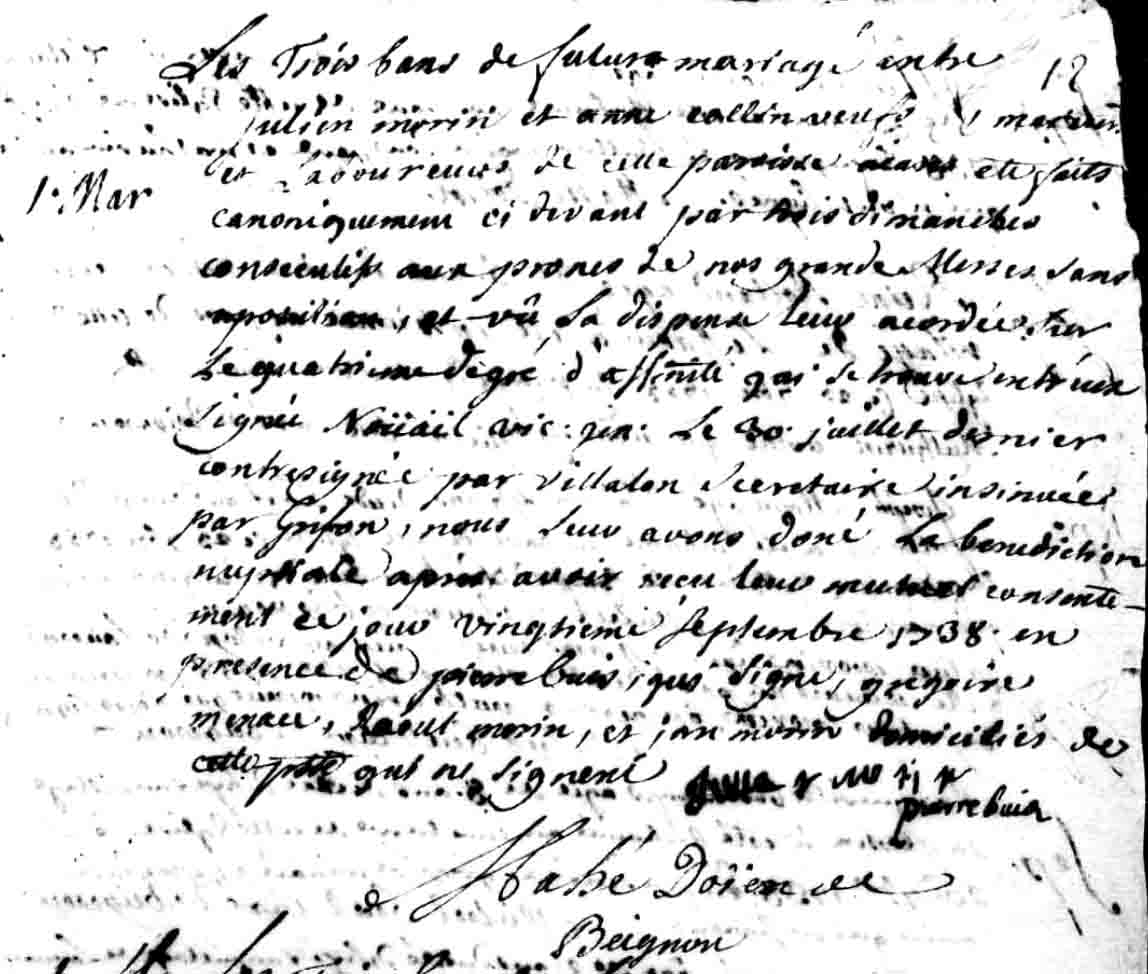 Les Trois bans de futur mariage entre
12
Julien morin et anne collin veufs, mineurs
et Laboureurs de cette paroisse aians eté faits
1. Mar
canoniquement ci devant par trois dimanches
consecutifs aux prones de nos grande Messes sans
aposition, et vû la dispense leur acordée sur
Le quatrieme degré d'affinité qui se trouve entr'eux
signée Noüail vic. gen. Le 30 juillet dernier
contresignée par villalon Secretaire insinuée
par Grifon, nous leur avons doné La benediction
nuptiale apres avoir recu leur mutuel consente-
ment ce jour vingtieme septembre 1738 en
presence de pierre buis, qui signe, gregoire
menace, Raoul morin, et jan morin domiciliés de
cette psse qui ne signent
pierre buis
Mahé Doïen de
Beignon